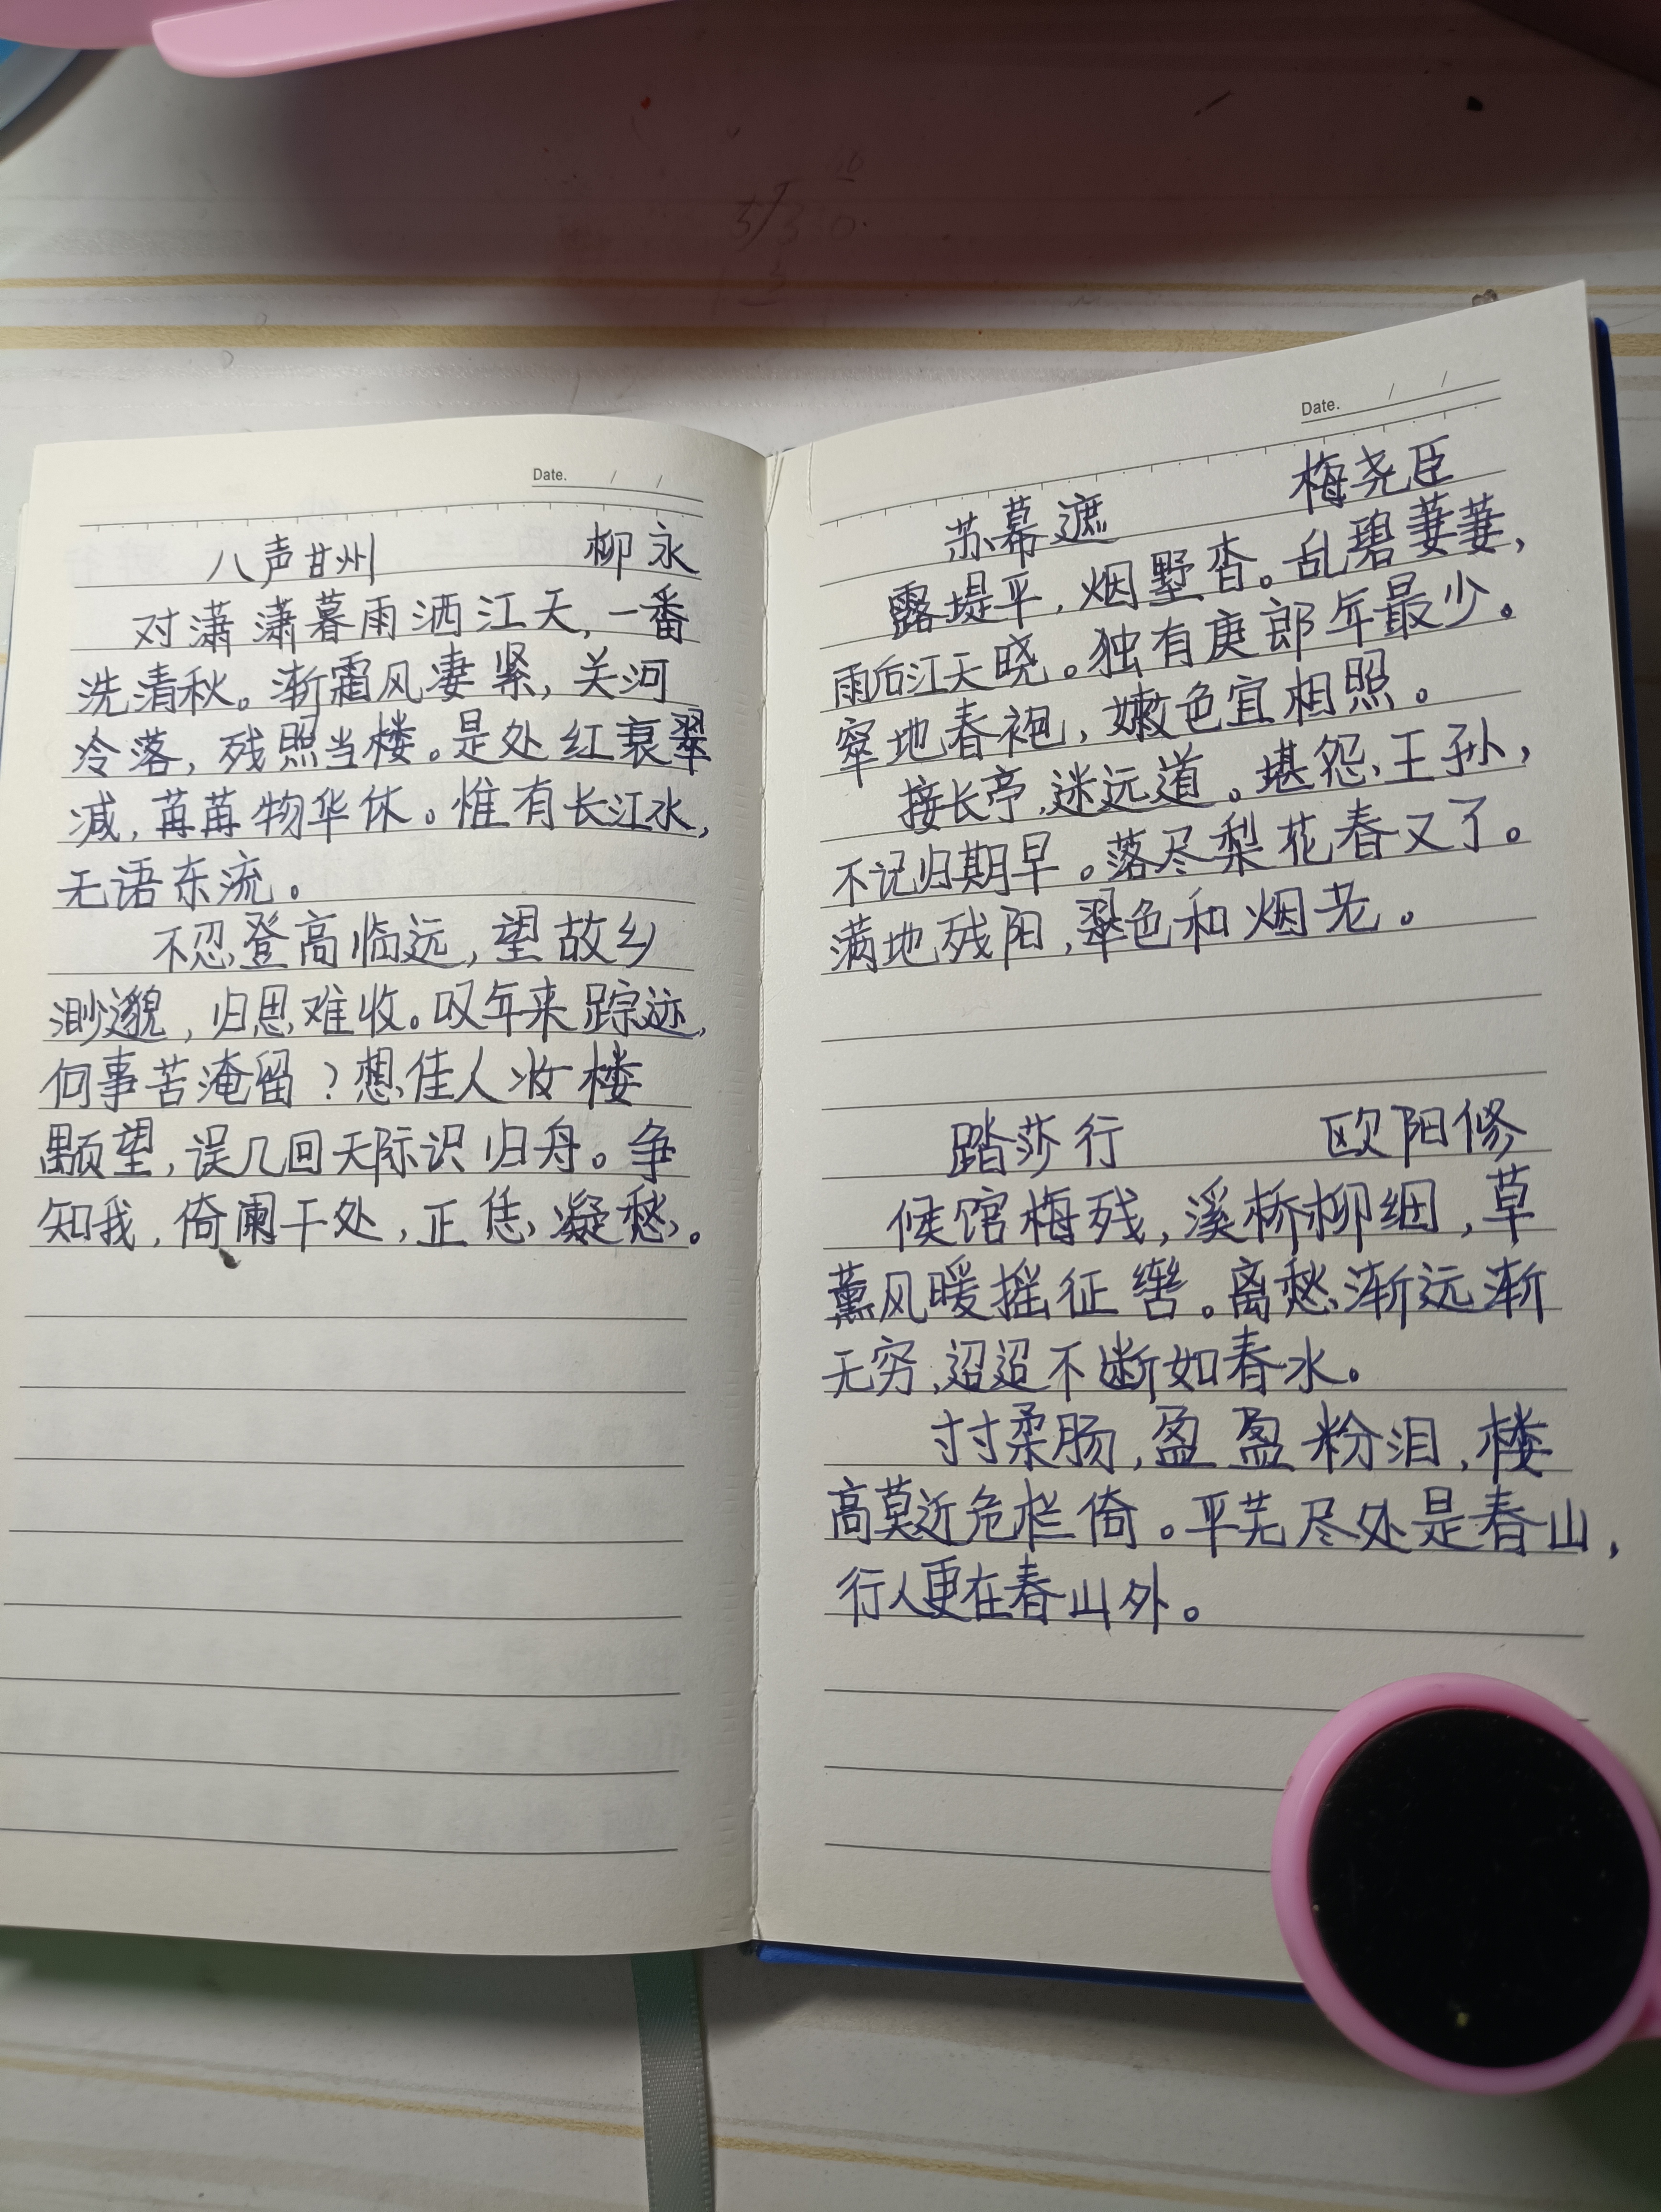 Date. / /
八声甘州 柳永
对潇潇暮雨洒江天,一番
洗清秋。渐霜风凄紧,关河
冷落,残照当楼。是处红衰翠
减,苒苒物华休。惟有长江水,
无语东流。
不忍登高临远,望故乡
渺邈,归思难收。叹年来踪迹,
何事苦淹留?想佳人妆楼
颙望,误几回天际识归舟。争
知我,倚阑干处,正恁凝愁。
Date. / /
苏幕遮 梅尧臣
露堤平,烟墅杳。乱碧萋萋,
雨后江天晓。独有庾郎年最少。
窣地春袍,嫩色宜相照。
接长亭,迷远道。堪怨王孙,
不记归期早。落尽梨花春又了。
满地残阳,翠色和烟老。
踏莎行 欧阳修
候馆梅残,溪桥柳细,草
薰风暖摇征辔。离愁渐远渐
无穷,迢迢不断如春水。
寸寸柔肠,盈盈粉泪,楼
高莫近危栏倚。平芜尽处是春山,
行人更在春山外。